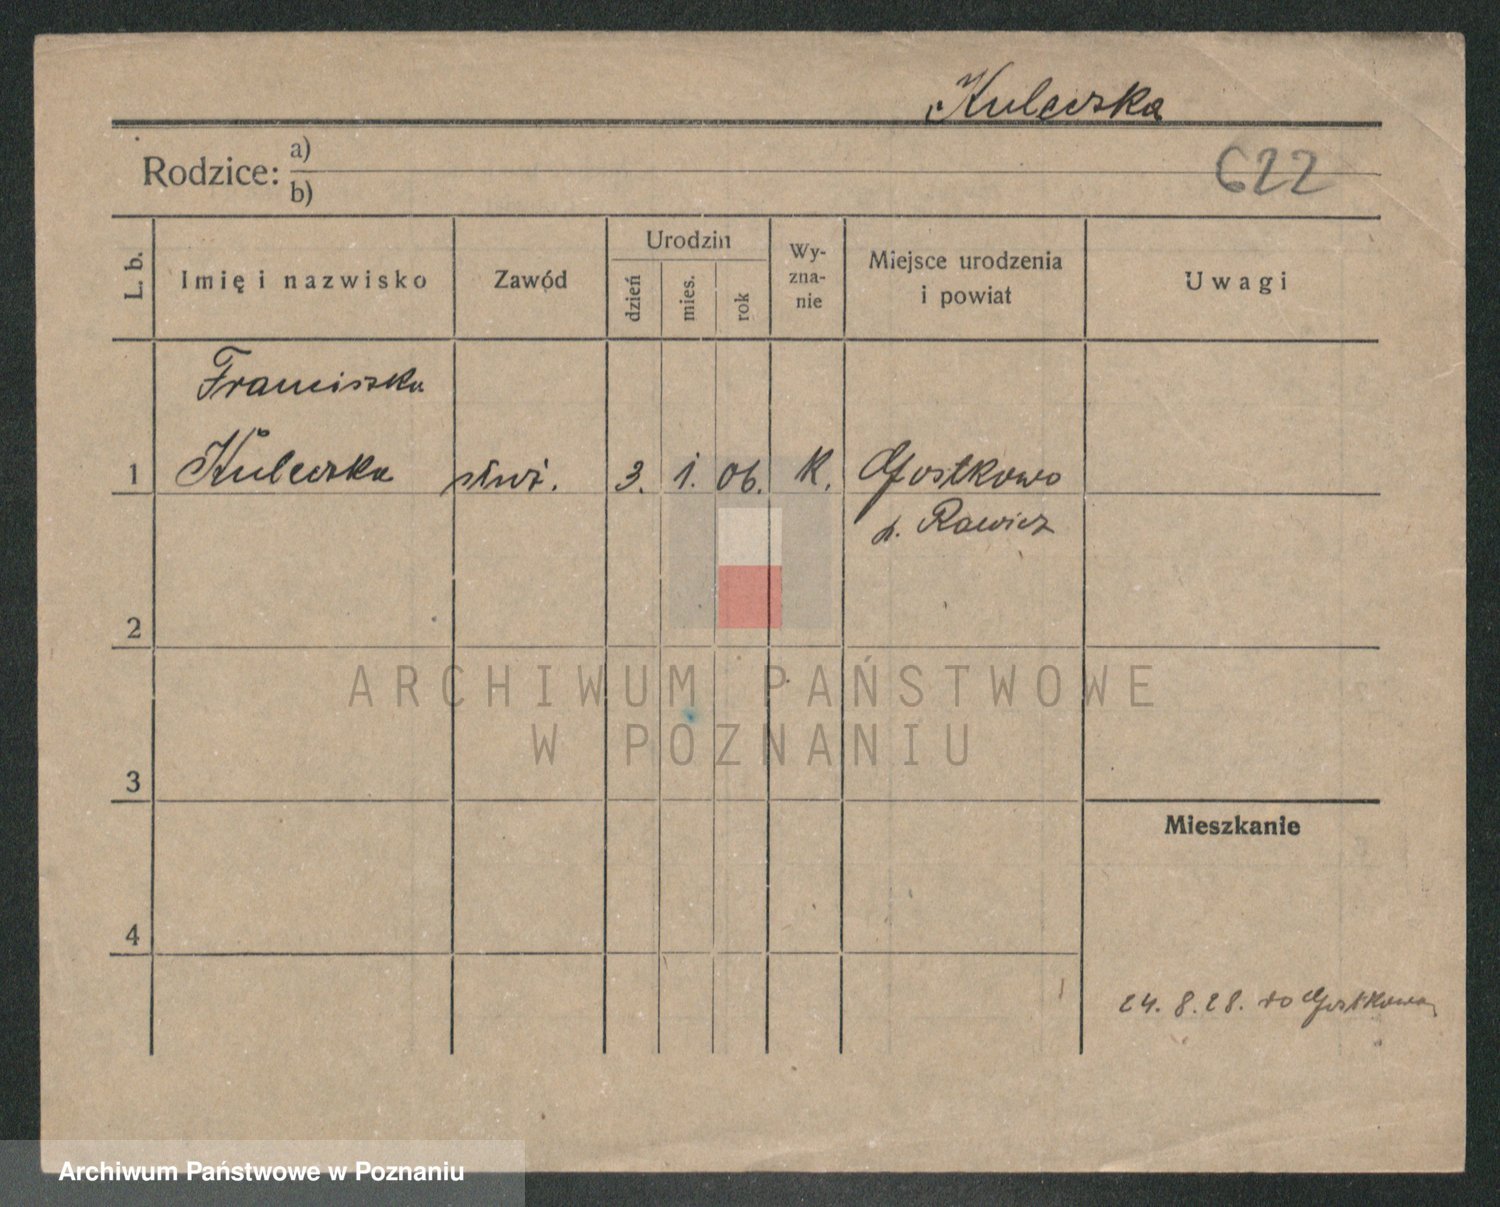 Kulewska
622
Rodzice: a)
b)
L. b.
Imię i nazwisko
Zawód
Urodzin
dzień
mies.
rok
Wy-
zna-
nie
Miejsce urodzenia
i powiat
Uwagi
Franciszka
1 Kulewska służ. 3. 1. 06. K. Gostkowo
p. Rawicz
2
3
Mieszkanie
4
24. 8. 28. do Gostkowa
ARCHIWUM PAŃSTWOWE
W POZNANIU
Archiwum Państwowe w Poznaniu